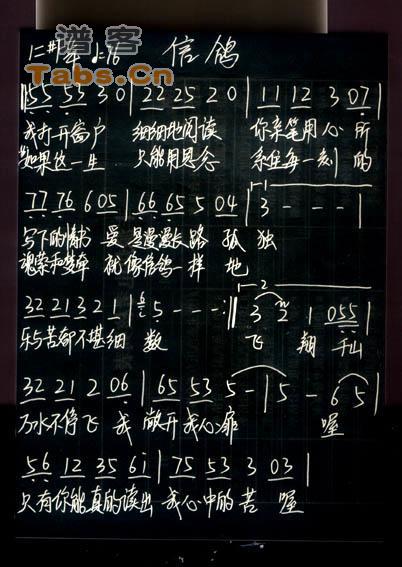 谱客
Tabs.Cn
1=#F 4/4 ♩=76 信鸽
||55 53 3 0 | 22 25 2 0 | 11 12 3 07 |
我打开窗户 细细地阅读 你亲笔用心 所
如果这一生 只能用思念 系住每一刻 的
77 76 6 05 | 66 65 5 04 | 3 - - - |
写下的情书 爱 是漫漫长路 孤 独
魂萦和梦牵 就 像信鸽一样 地
32 21 3 2 1 | 5 - - - :|| 3 2 1 055 |
乐与苦都不堪细 数 飞 翔 千山
32 21 2 06 | 65 53 5 - | 5 - 6 5 |
万水不停飞 我 敞开我心扉 喔
56 12 35 61 | 75 53 3 03 |
只有你能真的读出 我心中的苦 喔